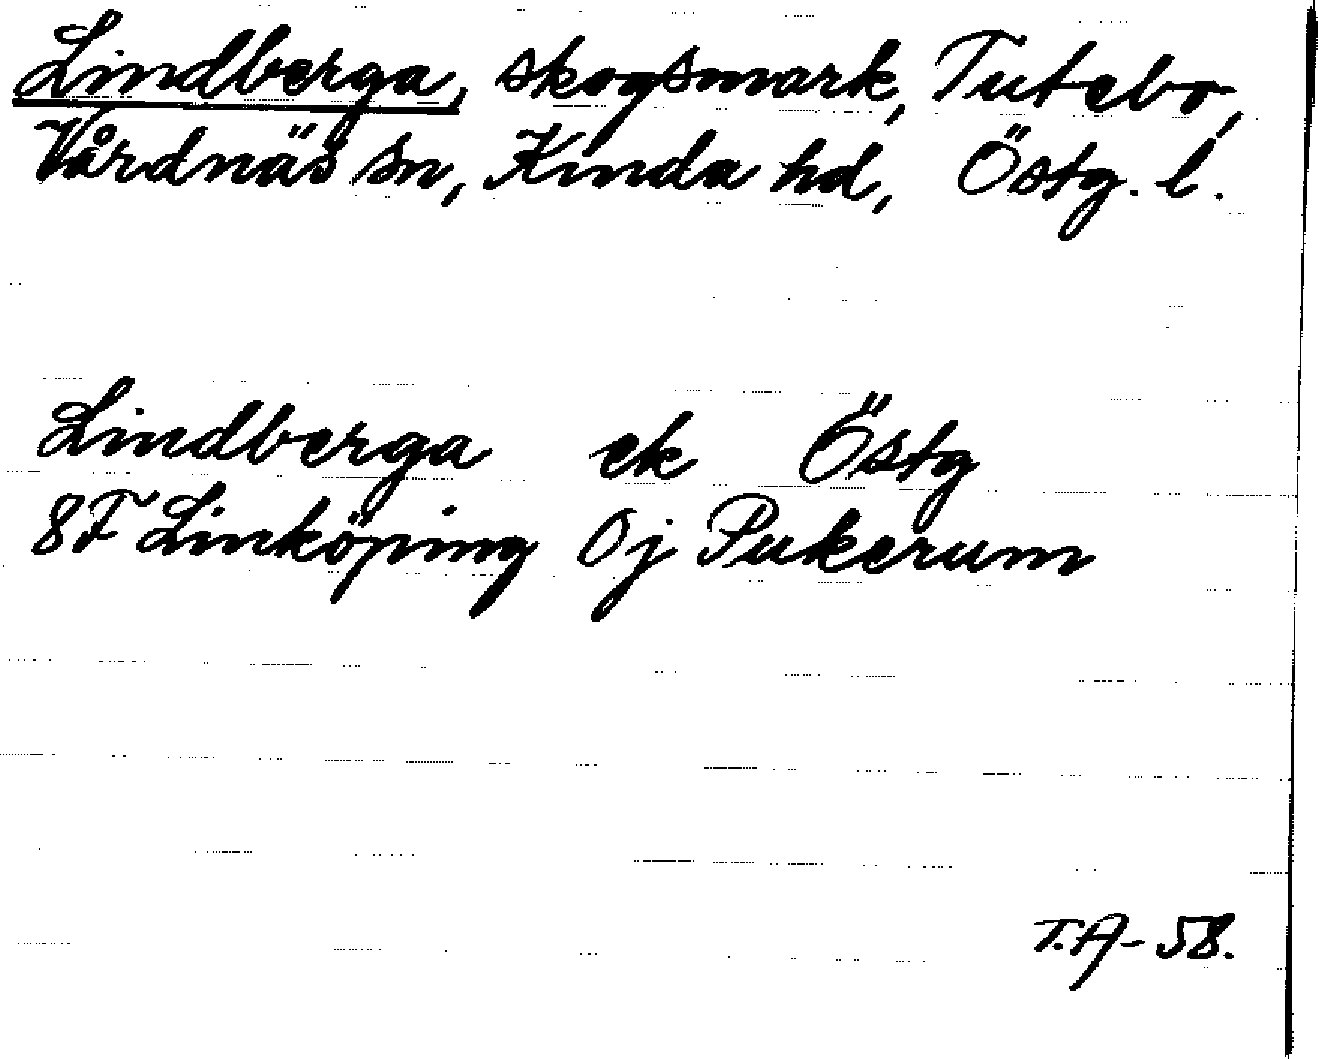 Lindberga, skogsmark, Tutebo,
Vårdnäs sn, Kinda hd, Östg. l.
Lindberga ek Östg
8F Linköping Oj Pukerum
T.A-58.